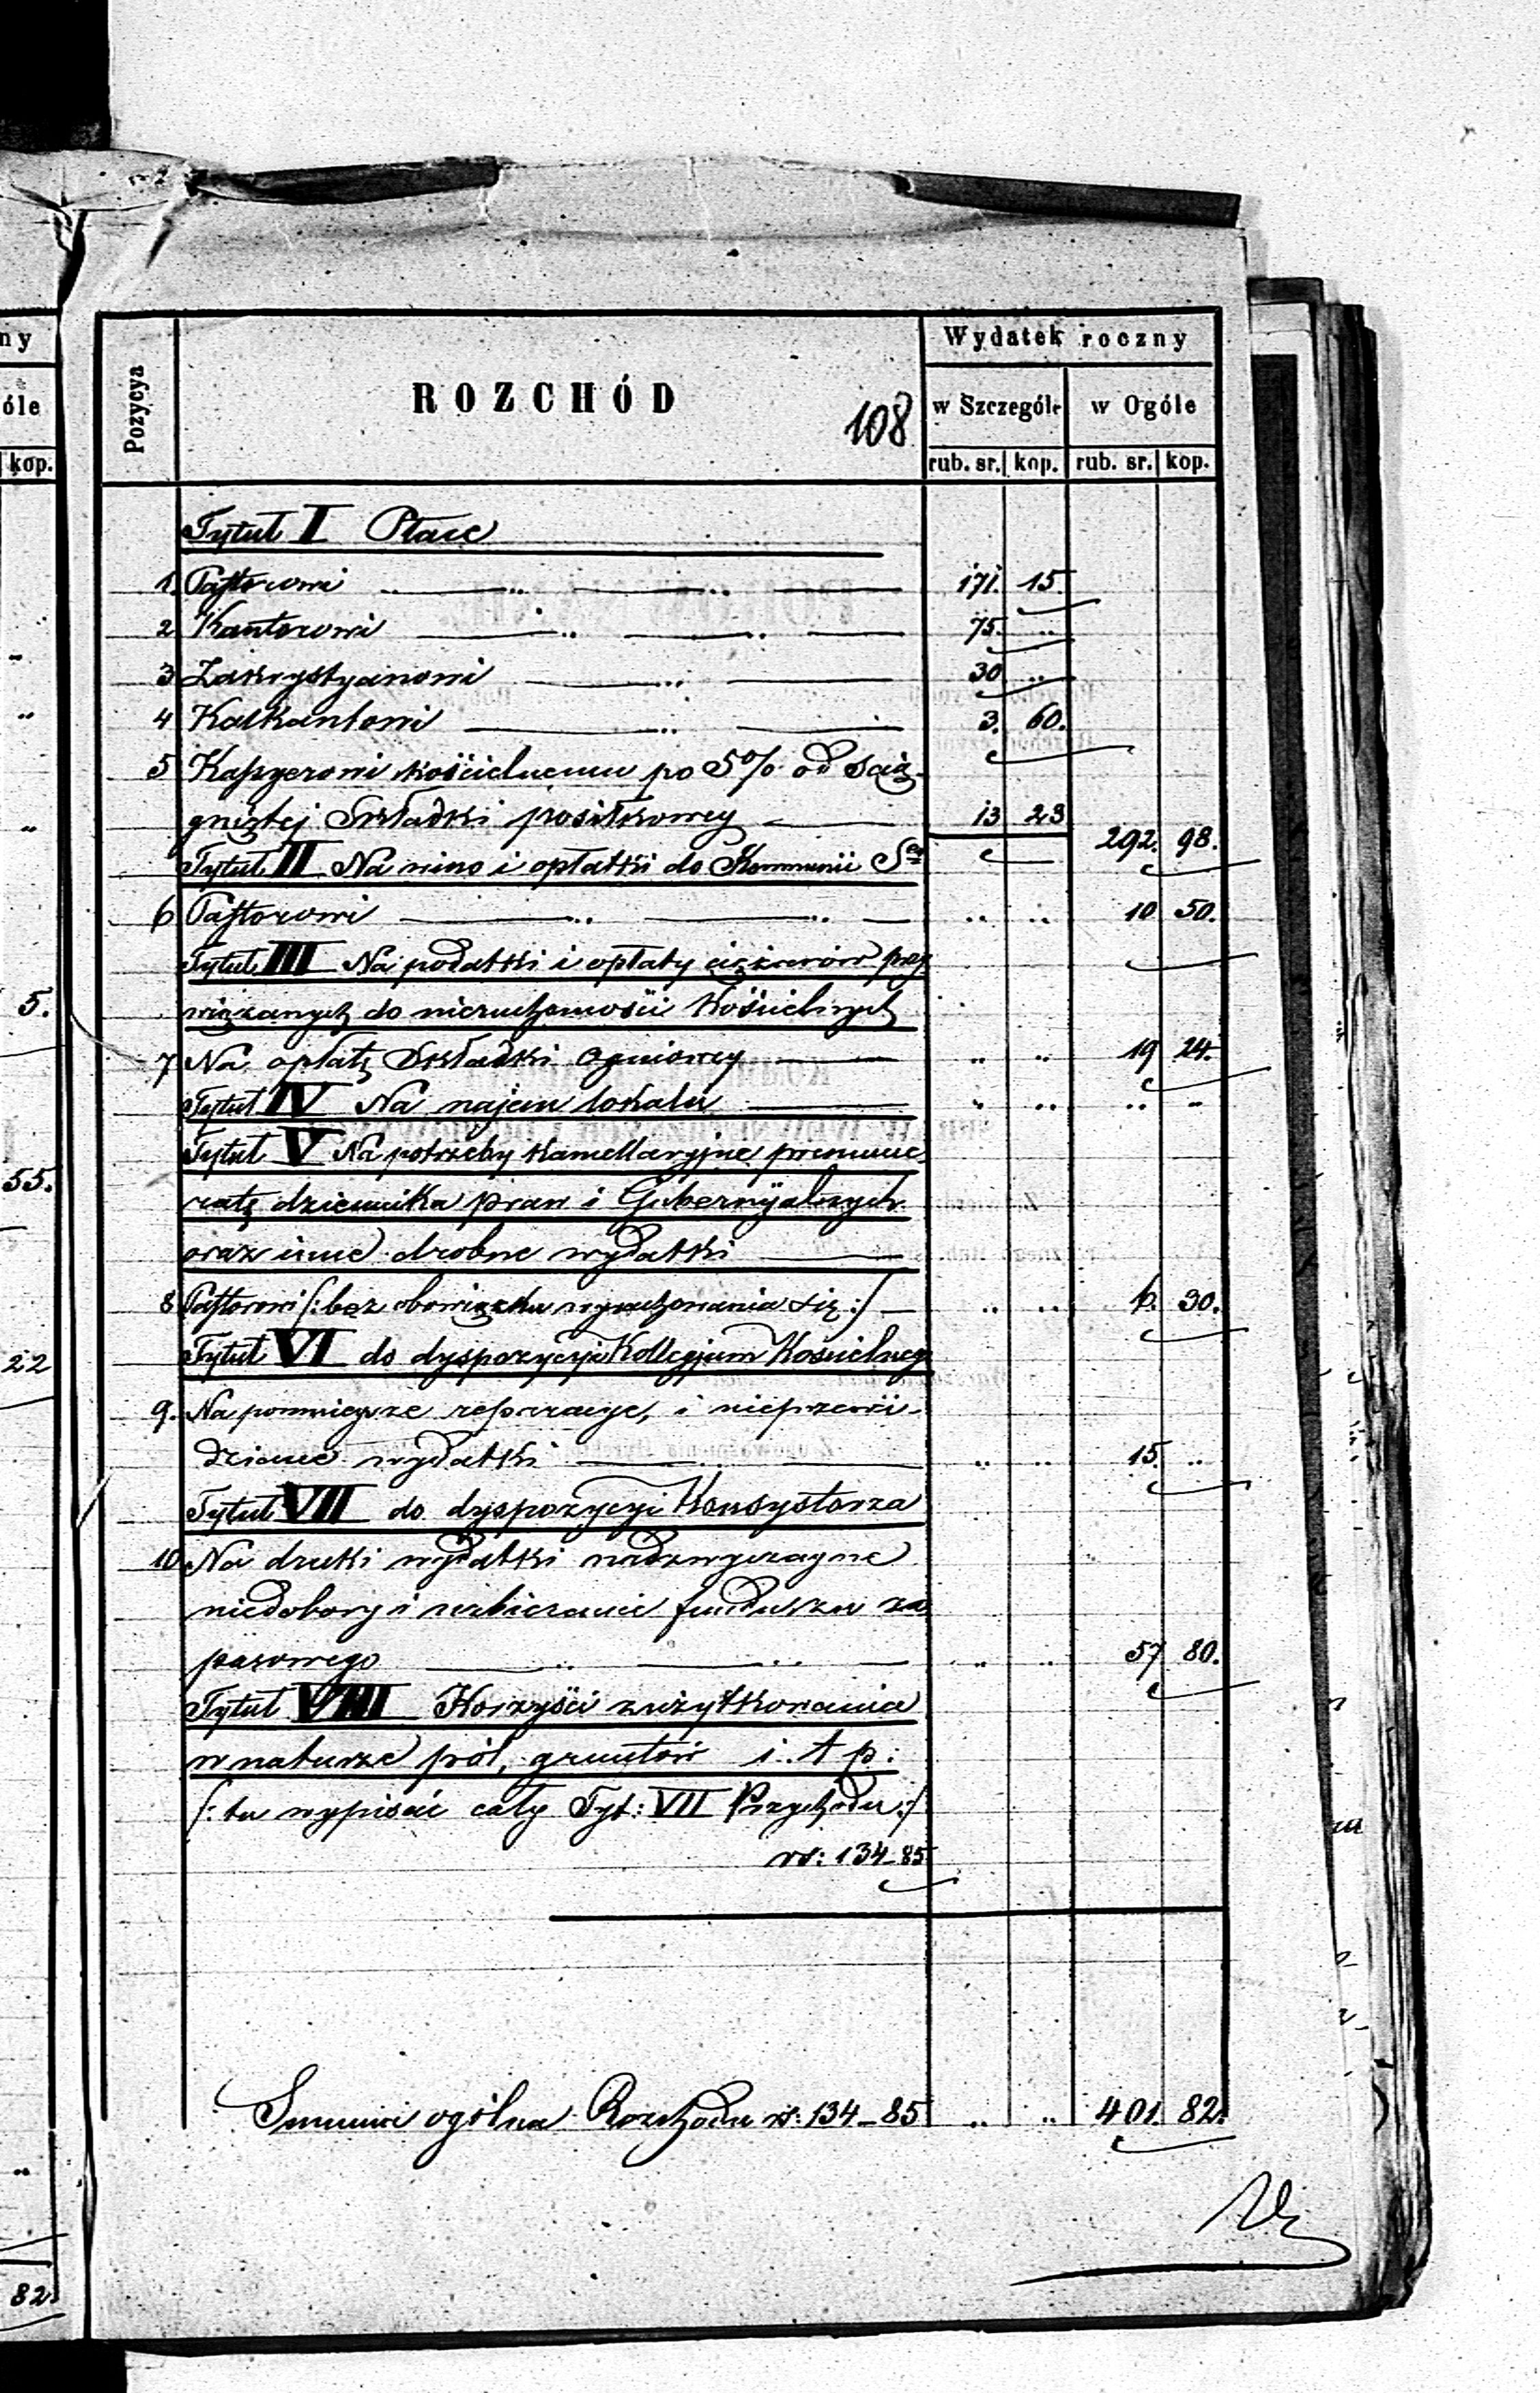 ny
óle
kop.
„
„
„
5.
55.
22
„
82.
Pozycya
ROZCHÓD
108
Wydatek roczny
w Szczególe
w Ogóle
rub. sr. kop. rub. sr. kop.
Tytuł I Płace
1. Pastorowi 171. 15.
2 Kantorowi 75. „
3 Zakrystyanowi 30 „
4 Kalkantowi 3. 60.
5 Kassyerowi kościelnemu po 5% od ścią-
gniętej Składki posiłkowey 13 23 292. 98.
Tytuł II Na wino i opłatki do Kommunii Sej
6 Pastorowi „ „ 10 50.
Tytuł III Na podatki i opłaty ciężarów przy
wiązanych do nieruchomości Kościelnych
7 Na opłatę Składki Ogniowey „ „ 19 24.
Tytuł IV Na najem lokalu „ „ „ „
Tytuł V Na potrzeby kancellaryjne prenume
ratę dziennika praw i Gubernyalnych
oraz inne drobne wydatki
8 Pastorowi /: bez obowiązku wyrachowania się :/ „ „ 6. 30.
Tytuł VI do dyspozycyi Kollegjum Kościelnego
9. Na pomniejsze reparacye, i nieprzewi-
dziane wydatki „ „ 15. „
Tytuł VII do dyspozycyi Konsystorza
10 Na druki wydatki nadzwyczayne
niedobory i uzbieranie funduszu za
pasowego „ „ 57 80.
Tytuł VIII Korzyści z użytkowania
w naturze pól, gruntów i. t p:
/: tu wypisać cały Tyt: VII Przychodu :/
rs: 134-85
Summa ogólna Rozchodu rs: 134-85 „ „ 401. 82.